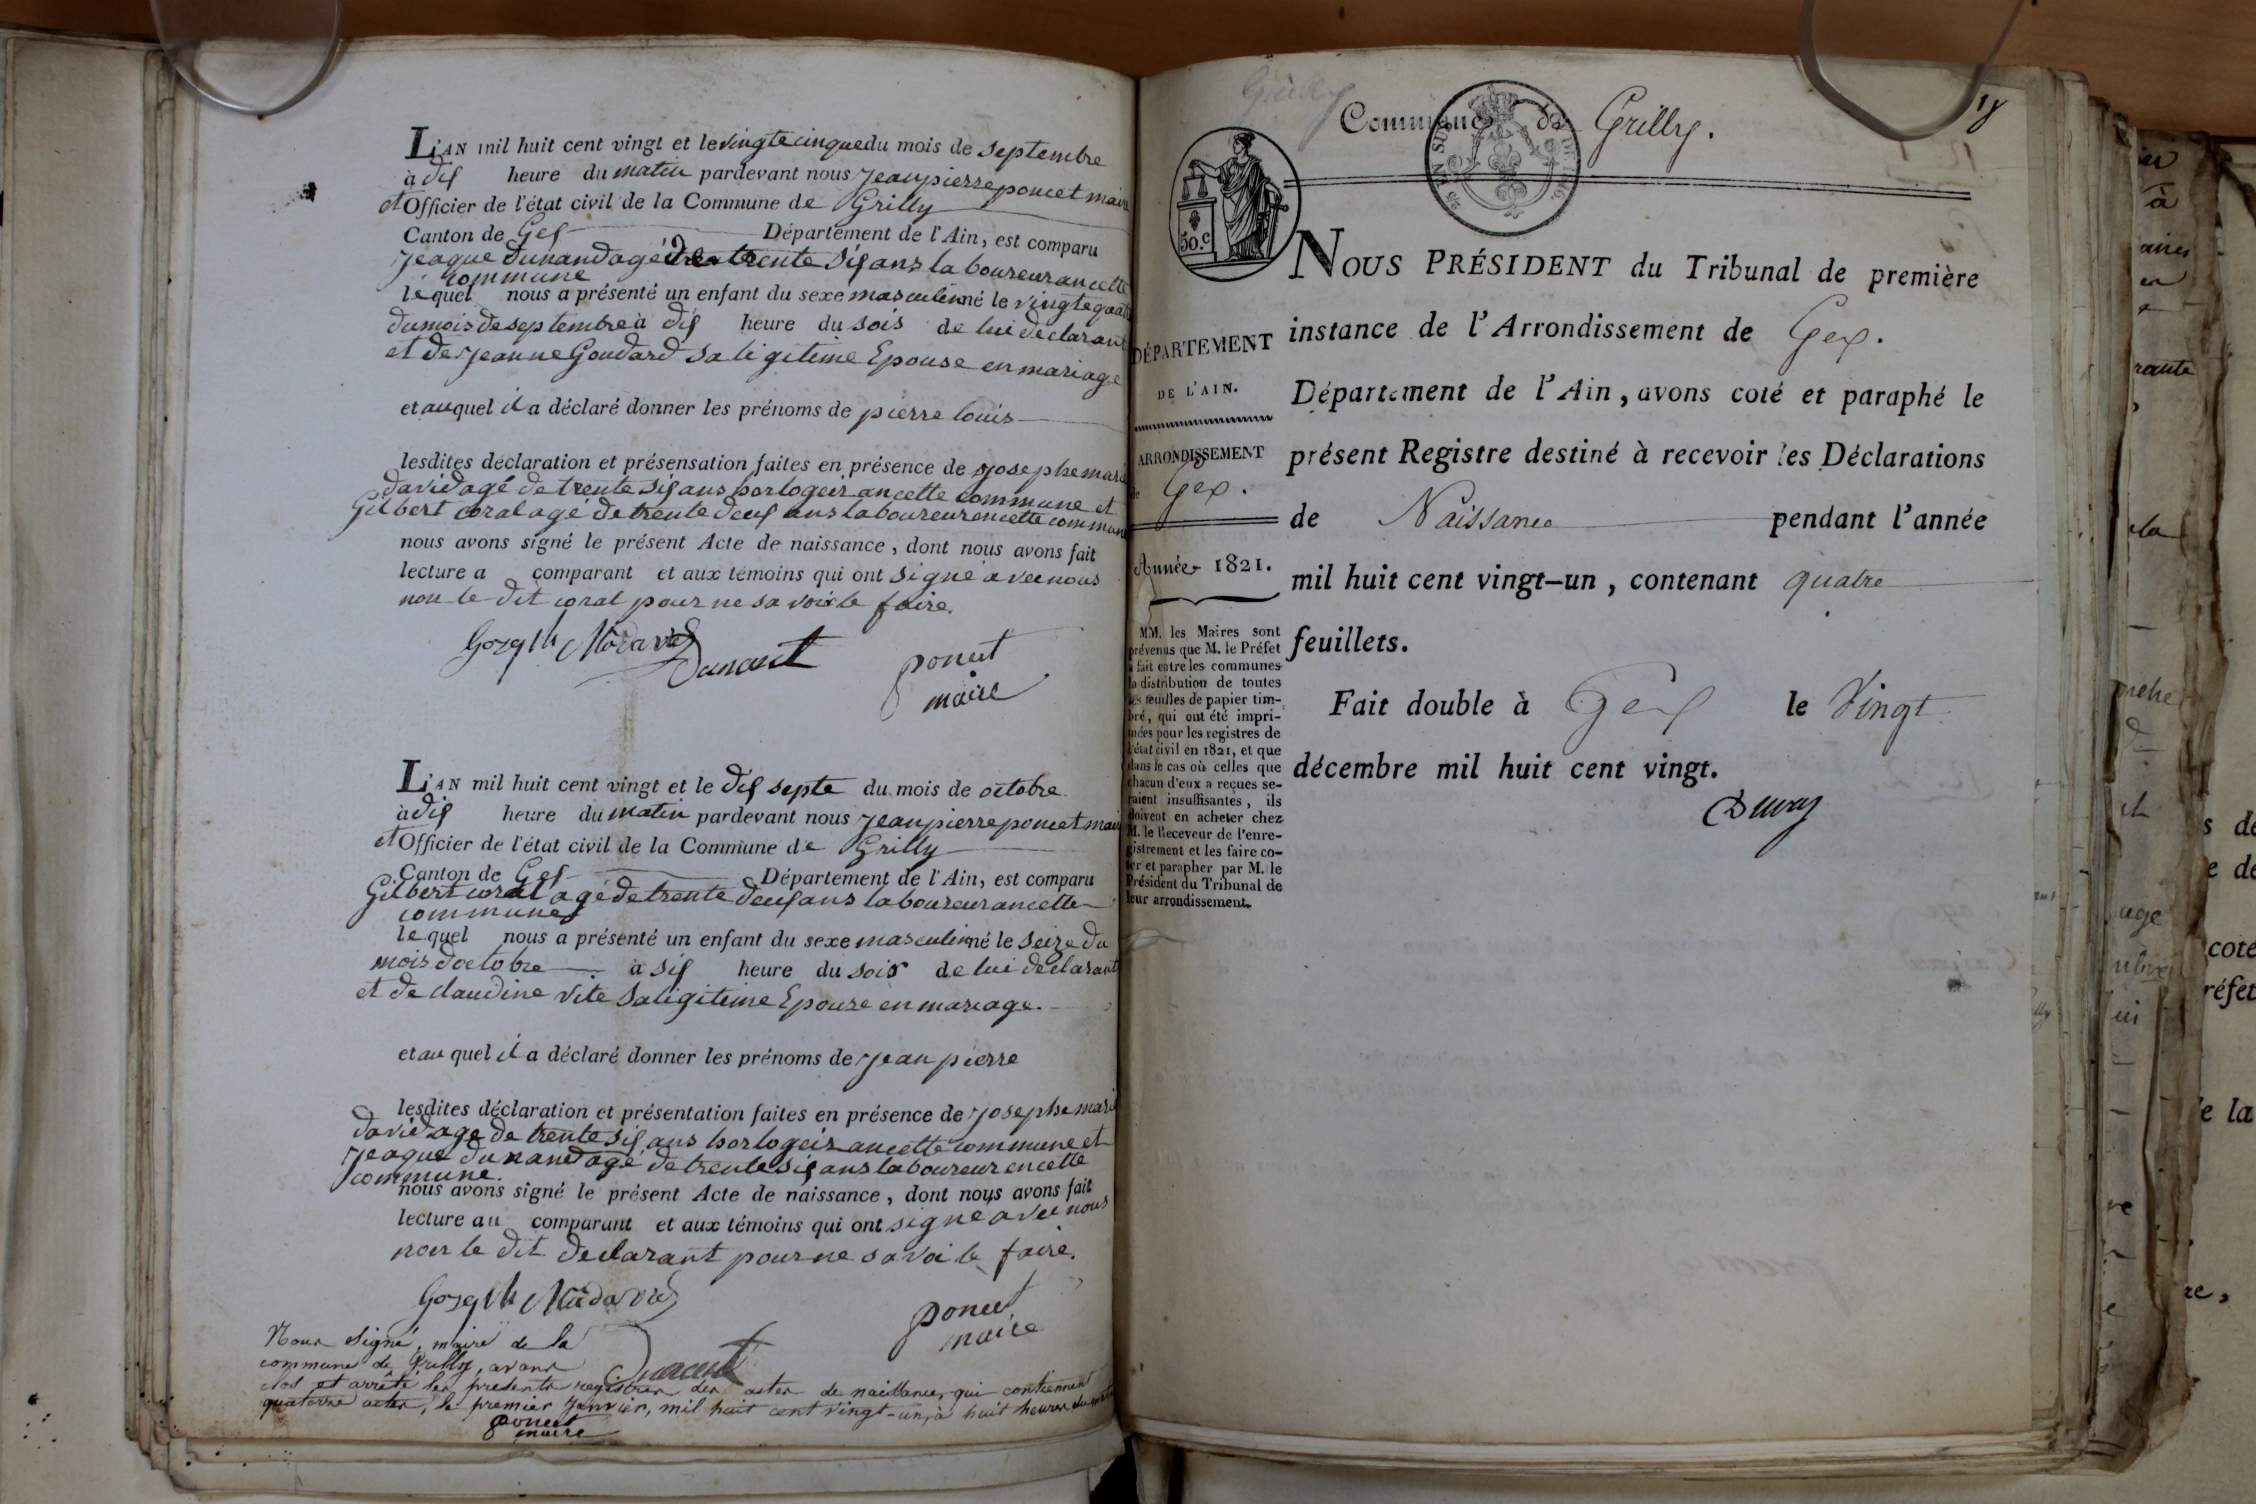 L'AN mil huit cent vingt et le vingte cinque du mois de septembre
à dis heure du matin pardevant nous jean pierre poncet maire
et Officier de l'état civil de la Commune de Grilly
Canton de Gex Département de l'Ain, est comparu
jeaque dunand agé de trente sis ans laboureur ancette
commune
lequel nous a présenté un enfant du sexe masculin né le vingte quatre
du mois de septembre à dis heure du sois de lui déclarant
et de jeanne Goudard sa ligitime Epouse en mariage
et auquel il a déclaré donner les prénoms de pierre louis
lesdites déclaration et présensation faites en présence de josephe marie
david agé de trente sis ans horlogeir ancette commune et
Gilbert coral agé de trente deus ans laboureur encette commune
nous avons signé le présent Acte de naissance, dont nous avons fait
lecture a comparant et aux témoins qui ont signé avec nous
non le dit coral pour ne savoir le faire.
Dunant poncet
maire
L'AN mil huit cent vingt et le dis septe du mois de octobre
à dis heure du matin pardevant nous jean pierre poncet maire
et Officier de l'état civil de la Commune de Grilly
Canton de Gex Département de l'Ain, est comparu
Gilbert coral agé de trente deus ans laboureur ancette
commune
lequel nous a présenté un enfant du sexe masculin né le seize du
mois d'octobre à sis heure du soir de lui déclarant
et de claudine vite sa ligitime Epouse en mariage.
et au quel il a déclaré donner les prénoms de jean pierre
lesdites déclaration et présentation faites en présence de josephe marie
david age de trente sis ans horlogeir ancette commune et
jeaque dunand agé de trente sis ans laboureur encette
commune.
nous avons signé le présent Acte de naissance, dont nous avons fait
lecture au comparant et aux témoins qui ont signé avec nous
non le dit declarant pour ne savoi le faire.
poncet
maire
Nous signé, maire de la
commune de Grilly, avons Dunant
clos et arrêté les presents registres des actes de naissance, qui contiennent
quatorze actes, le premier janvier, mil huit cent vingt-un, à huit heures du matin
poncet
maire
Grilly
Commune de Grilly.
50.c
NOUS PRÉSIDENT du Tribunal de première
instance de l'Arrondissement de Gex.
Département de l'Ain, avons coté et paraphé le
présent Registre destiné à recevoir les Déclarations
de Naissance pendant l'année
mil huit cent vingt-un, contenant quatre
feuillets.
Fait double à Gex le Vingt
décembre mil huit cent vingt.
DÉPARTEMENT
DE L'AIN.
ARRONDISSEMENT
de Gex.
Année 1821.
MM. les Maires sont
prévenus que M. le Préfet
a fait entre les communes
la distribution de toutes
les feuilles de papier tim-
bré, qui ont été impri-
mées pour les registres de
l'état civil en 1821, et que
dans le cas où celles que
chacun d'eux a reçues se-
raient insuffisantes, ils
doivent en acheter chez
M. le Receveur de l'enre-
gistrement et les faire co-
ter et parapher par M. le
Président du Tribunal de
leur arrondissement.